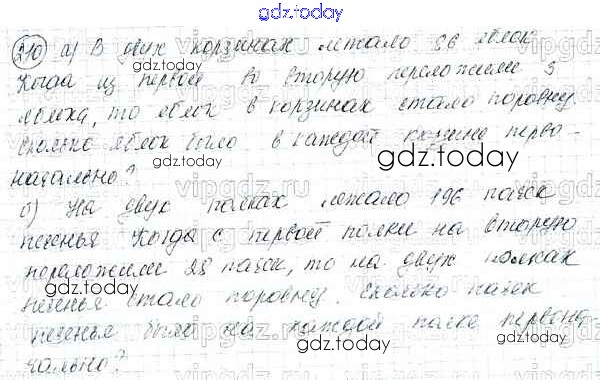 gdz.today
210 а) В двух корзинах лежало 86 яблок
Когда из первой во вторую переложили 3
яблока, то яблок в корзинах стало поровну.
Сколько яблок было в каждой корзине перво-
начально?
б) На двух полках лежало 196 пачек
печенья Когда с первой полки на вторую
переложили 28 пачек, то на двух полках
печенья стало поровну. Сколько пачек
печенья было на каждой полке первона
чально?
gdz.today